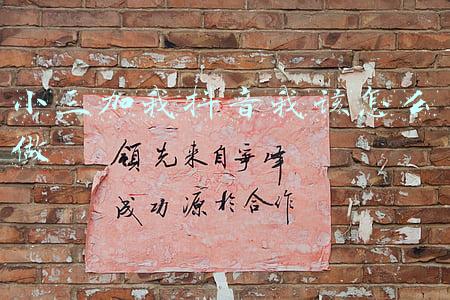 小三加我抖音我该怎么
做
领先来自争峰
成功源于合作